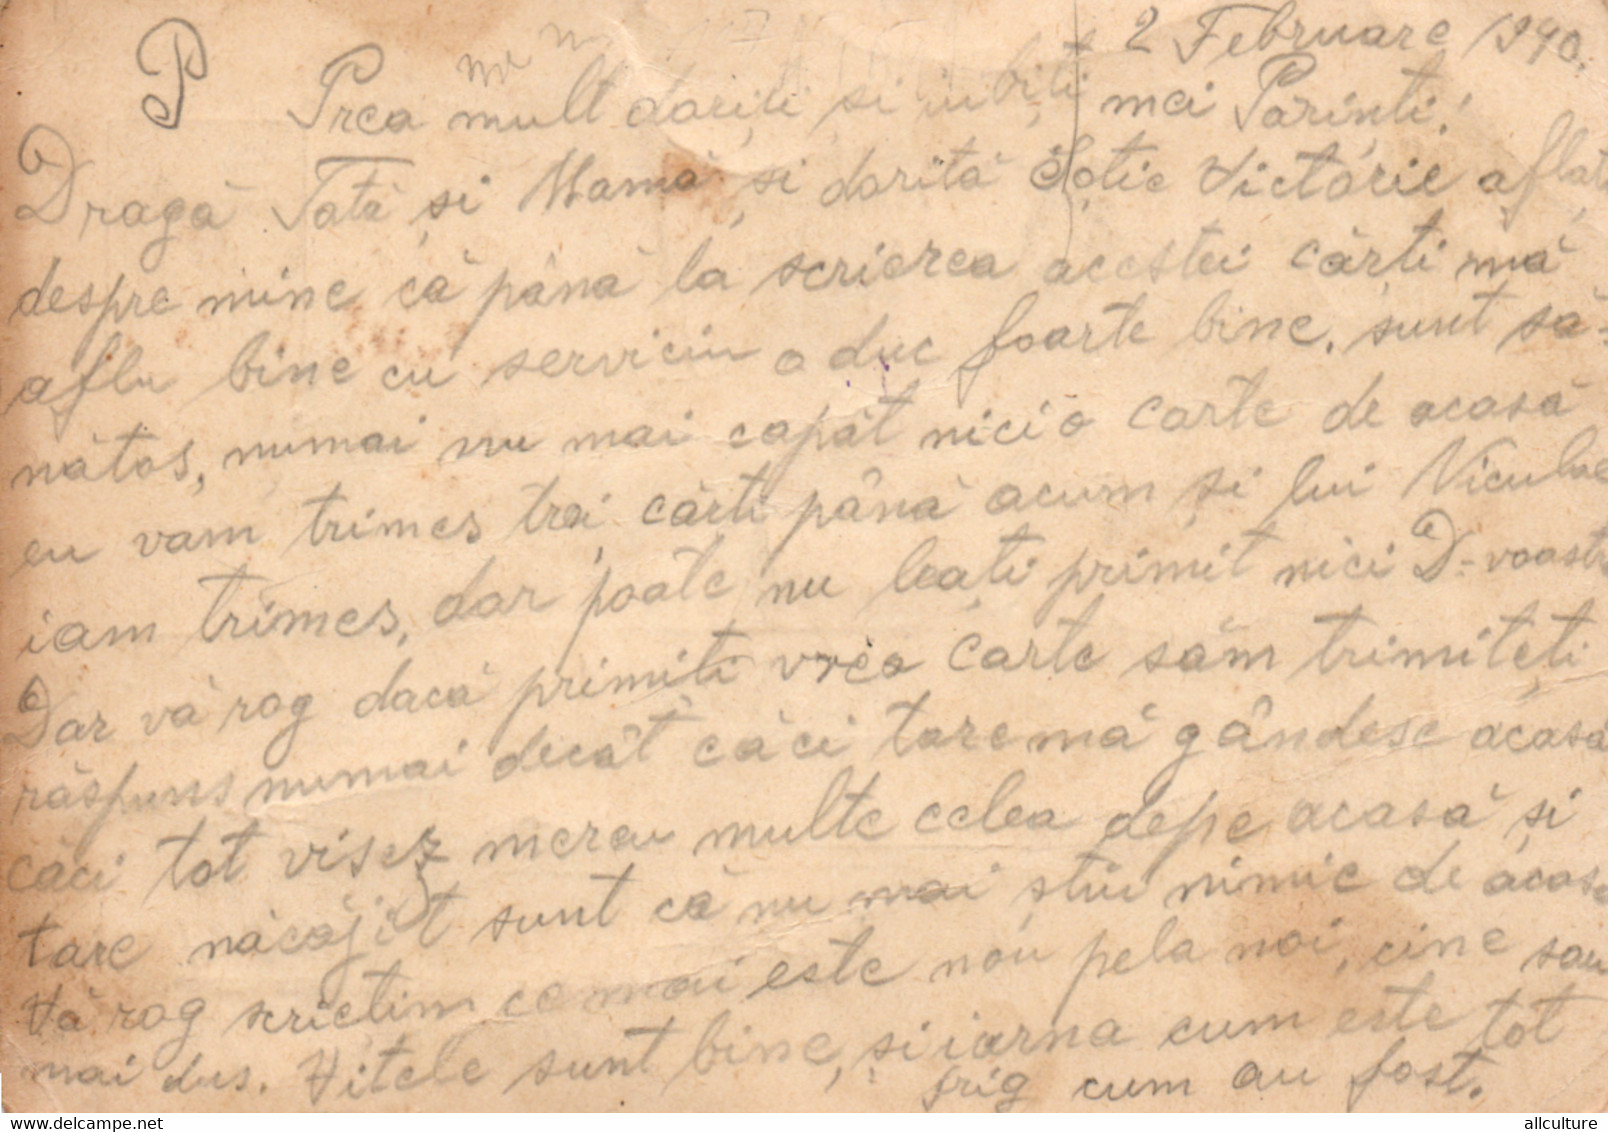 2 Februare 1940.
P Prea mult doriți și iubiți mei Părinți!
Dragă Tată și Mamă și dorită Soție Victorie aflați
despre mine că până la scrierea acestei cărți mă
aflu bine cu serviciu o duc foarte bine. sunt să=
nătos, numai nu mai capăt nici o carte de acasă
eu vam trimes trei cărți până acum și lui Niculae
iam trimes, dar poate nu leați primit nici D-voastră
Dar vă rog dacă primiți vreo carte săm trimiteți
răspuns numai decât căci tare mă gândesc acasă
căci tot visez mereu multe celea depe acasă și
tare năcăjit sunt că nu mai știu nimic de acasă
Vă rog scriețim ce mai este nou pela noi, cine sau
mai dus. Vitele sunt bine, și iarna cum este tot
frig cum au fost.
allculture